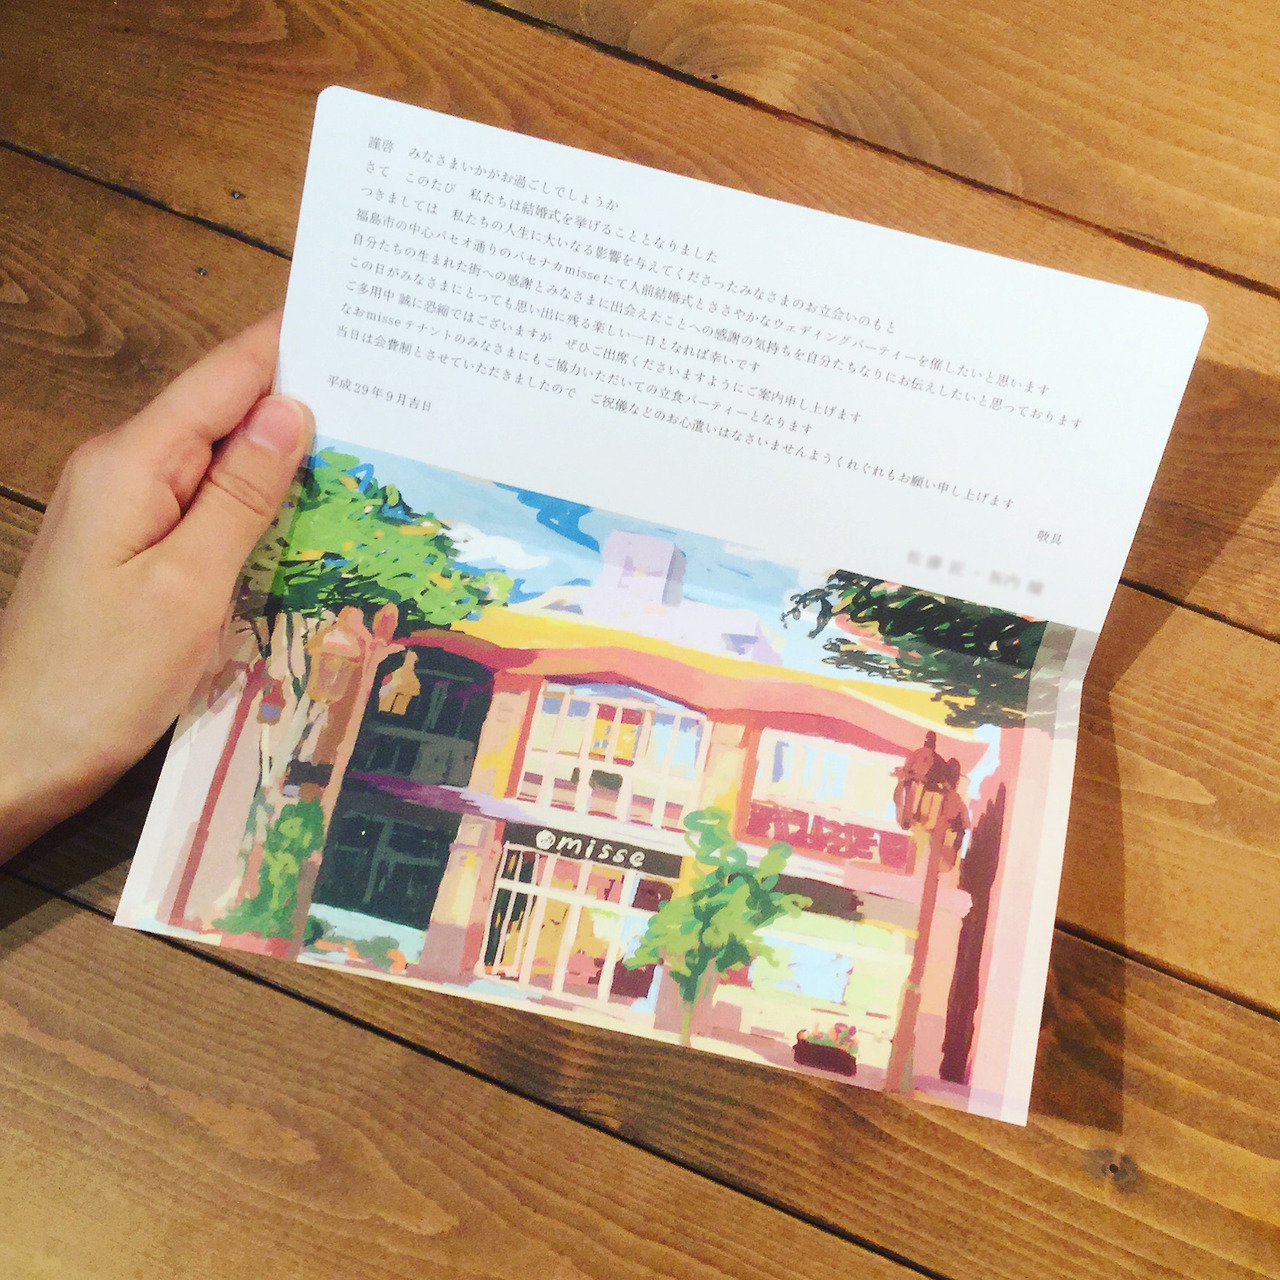 謹啓　みなさまいかがお過ごしでしょうか
さて　このたび　私たちは結婚式を挙げることとなりました
つきましては　私たちの人生に大いなる影響を与えてくださったみなさまのお立会いのもと
福島市の中心パセオ通りのパセナカmisseにて人前結婚式とささやかなウェディングパーティーを催したいと思います
自分たちの生まれた街への感謝とみなさまに出会えたことへの感謝の気持ちを自分たちなりにお伝えしたいと思っております
この日がみなさまにとっても思い出に残る楽しい一日となれば幸いです
ご多用中 誠に恐縮ではございますが　ぜひご出席くださいますようにご案内申し上げます
なおmisseテナントのみなさまにもご協力いただいての立食パーティーとなります
当日は会費制とさせていただきましたので　ご祝儀などのお心遣いはなさいませんようくれぐれもお願い申し上げます
平成29年9月吉日
敬具
misse